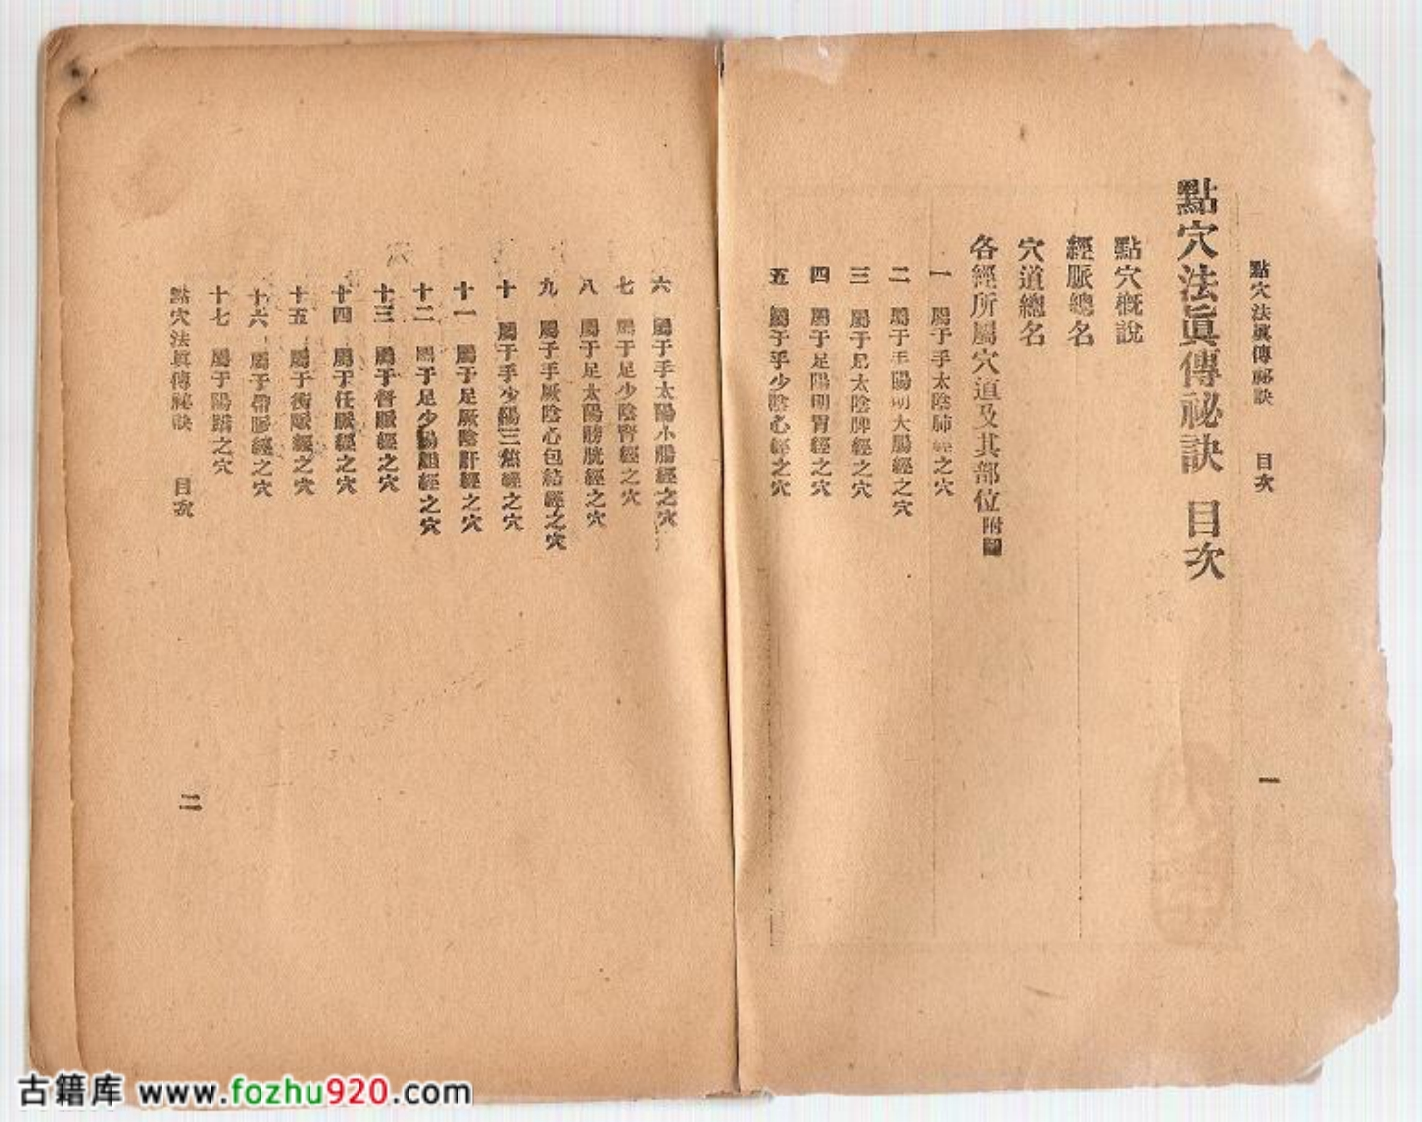 點穴法眞傳祕訣　目次
一
點穴法眞傳祕訣　目次
點穴概說
經脈總名
穴道總名
各經所屬穴道及其部位附圖
一　屬于手太陰肺經之穴
二　屬于手陽明大腸經之穴
三　屬于足太陰脾經之穴
四　屬于足陽明胃經之穴
五　屬于手少陰心經之穴
六　屬于手太陽小腸經之穴
七　屬于足少陰腎經之穴
八　屬于足太陽膀胱經之穴
九　屬于手厥陰心包絡經之穴
十　屬于手少陽三焦經之穴
十一　屬于足厥陰肝經之穴
十二　屬于足少陽膽經之穴
十三　屬于督脈經之穴
十四　屬于任脈經之穴
十五　屬于衝脈經之穴
十六　屬于帶脈經之穴
十七　屬于陽蹻之穴
點穴法眞傳祕訣　目次
二
古籍库 www.fozhu920.com